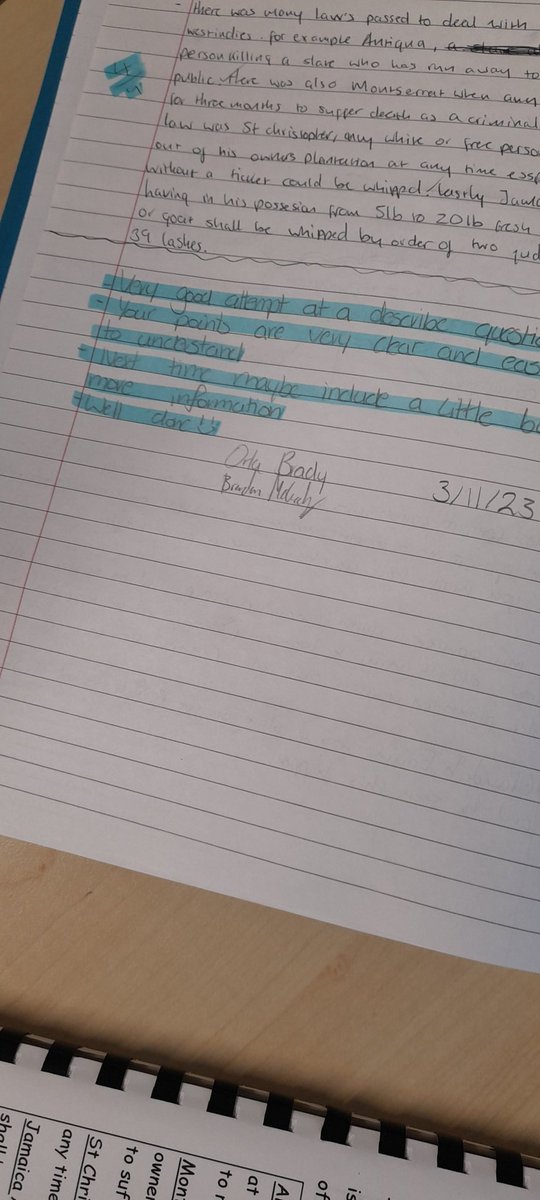 - there was many law's passed to deal with
westindies. for example Antigua, a
person killing a slave who has run away to
public. Here was also Montserrat when any
for three months to suffer death as a criminal
law was St christopher, any white or free perso
out of his owners plantation at any time
without a ticket could be whipped. lastly Jam
having in his possesion from 5lb to 20lb fresh
or goat shall be whipped by order of two jud
39 lashes.
+ Very good attempt at a describe questi
+ Your points are very clear and eas
to understand
- Next time maybe include a little b
more information
+ Well done
Orla Brady
3/11/23
is
of
A
at
to r
Mon
owne
to suf
St Chri
any time
Jamaica
shall